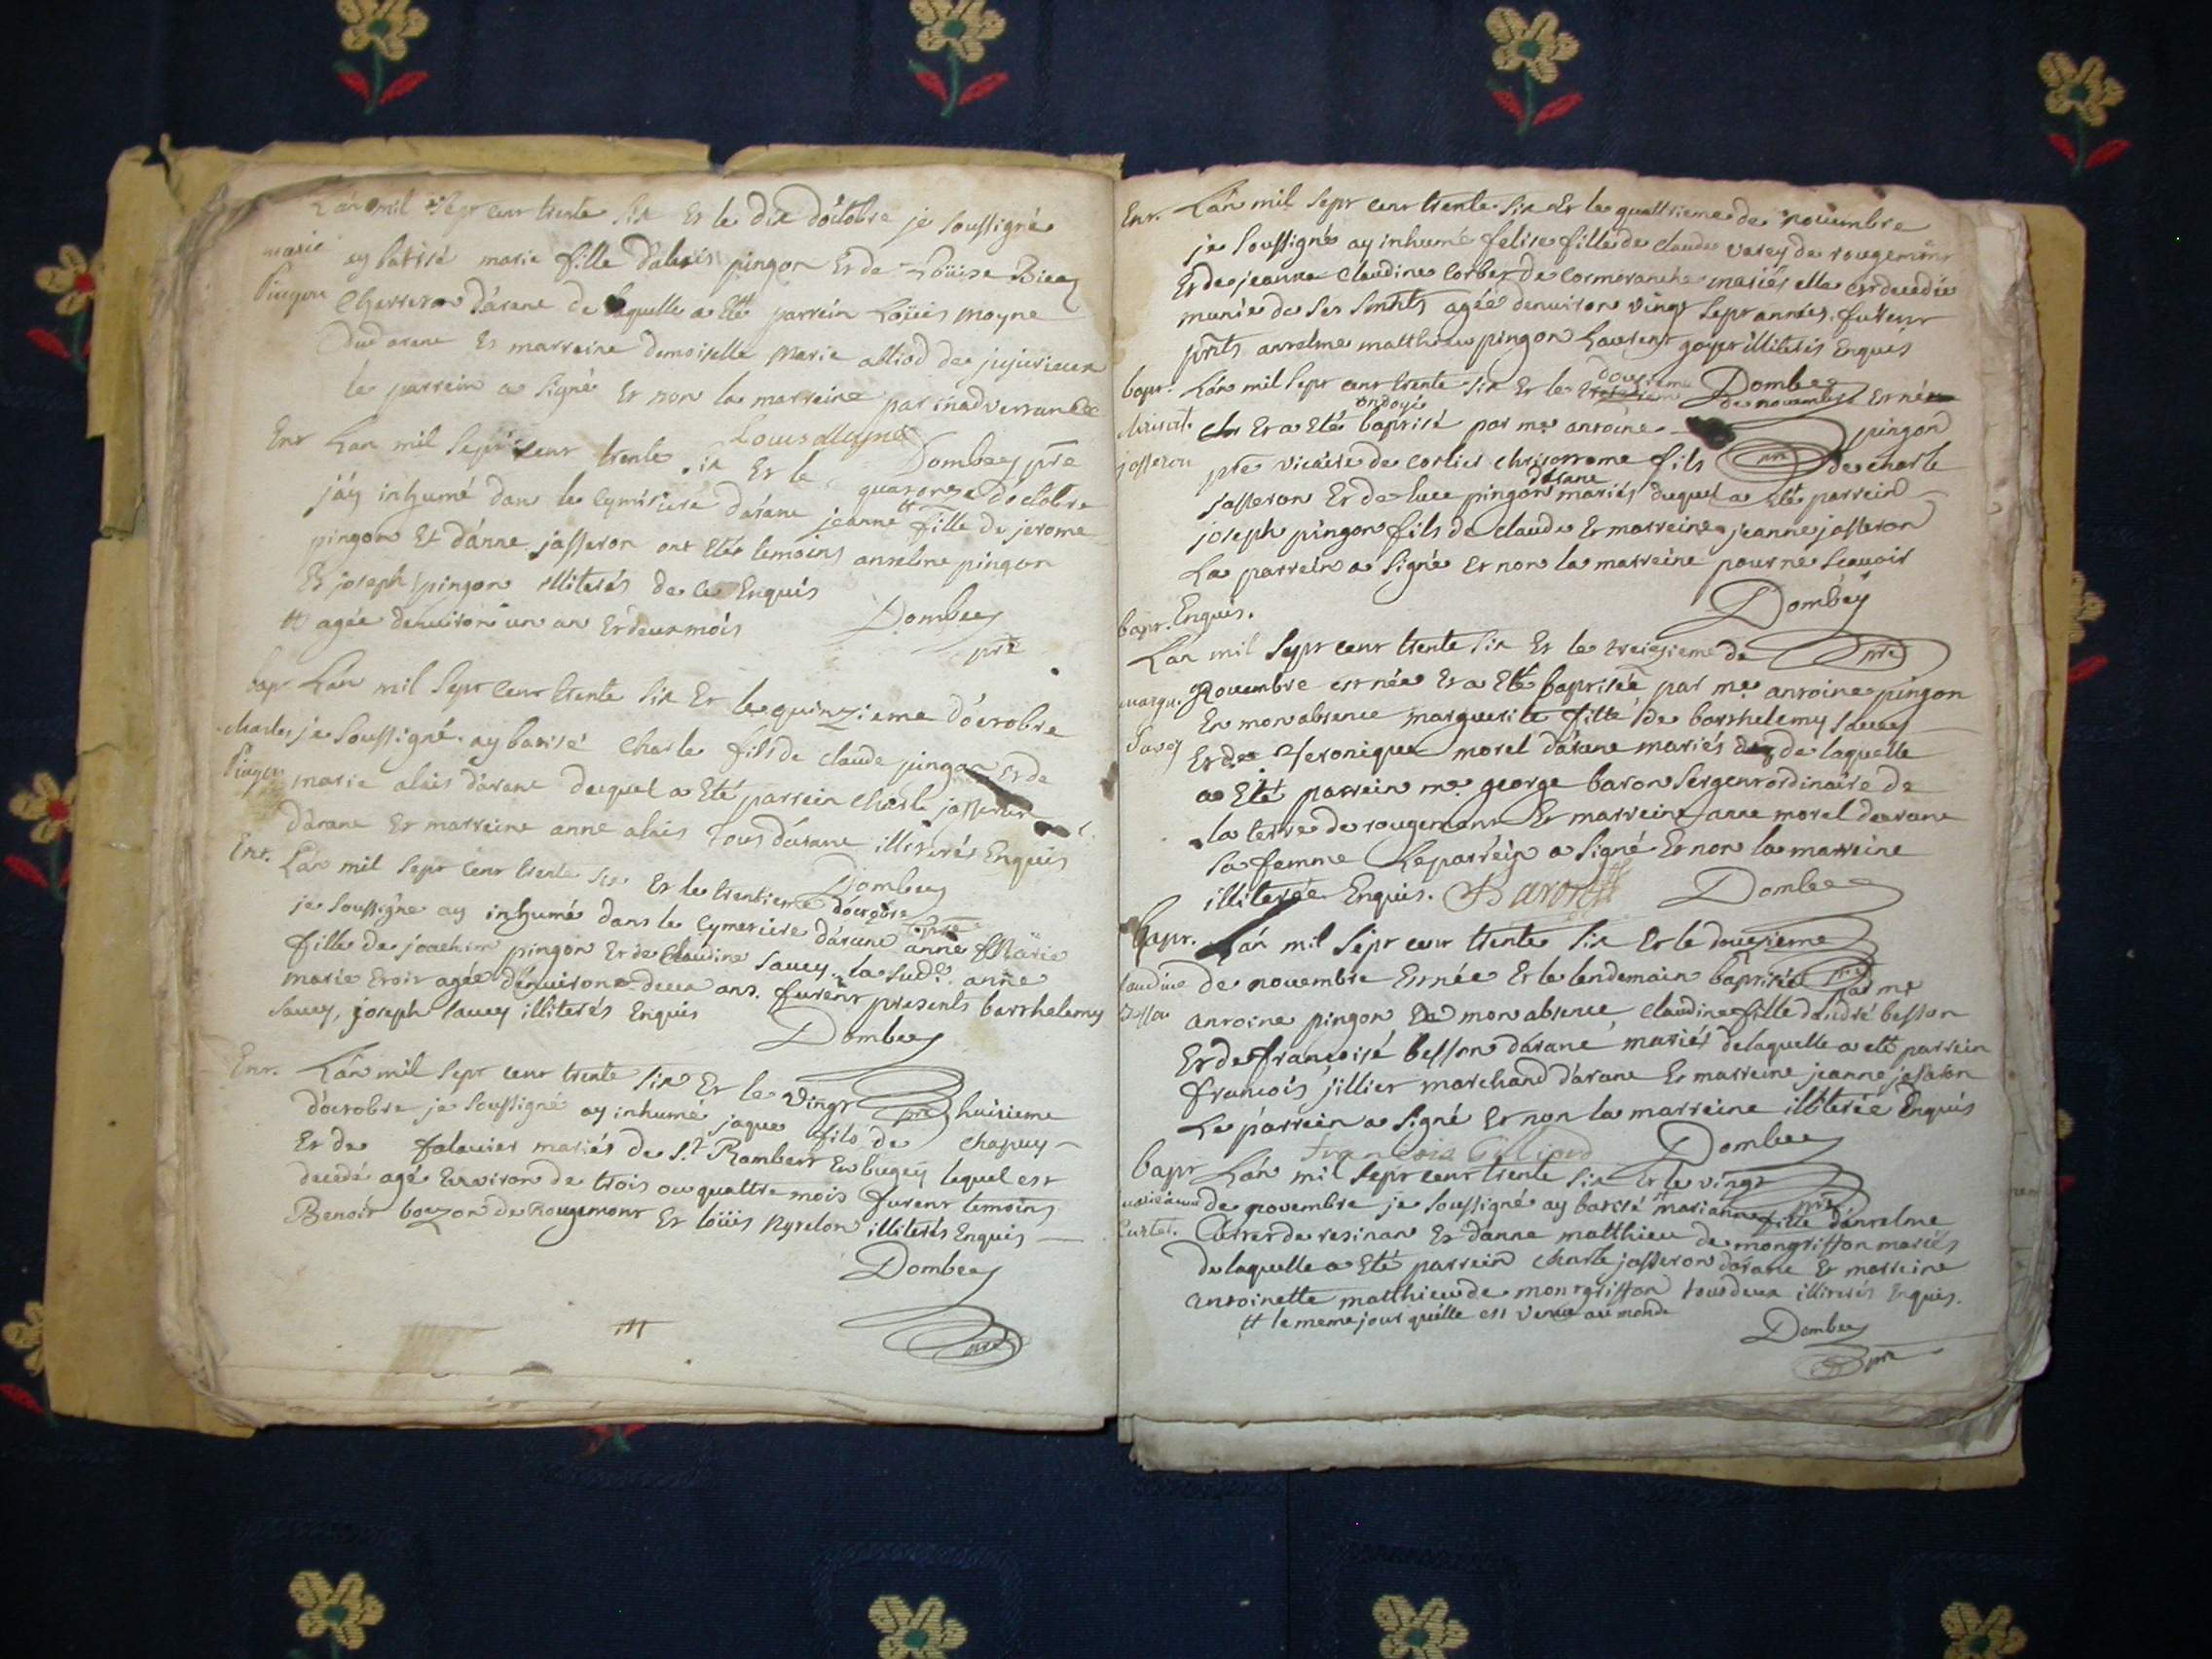 L'an mil sept cent trente six et le dix d'octobre je soussigné
marie
ay batisé marie fille d'alexis pingon et de Loüise
Pingon
d'arane de laquelle a eté parrein Loüis moyne
dud arane et marreine demoiselle marie alliod de jujurieux
le parrein a signé et non la marreine par inadverrance
Louis Moyne
Dombey pre
Enr
Lan mil sept cent trente six et le quatorze doctobre
j'ay inhumé dans le cymetiere d'arane jeanne tt fille de jerome
pingon et d'anne jasseron ont eté temoins anselme pingon
et joseph pingon illiterés de ce enquis
tt agée denuiron un an et deux mois
Dombey
pre
bapt
Lan mil sept cent trente six et le quinzieme d'octobre
charles
je soussigné ay batisé charle fils de claude pingon et de
Pingon
marie alais d'arane duquel a eté parrein charle jasseron
d'arane et marreine anne alais tous d'arane illiterés enquis
Dombey
pre
Enr.
L'an mil sept cent trente six et le trentieme d'octobre
je soussigné ay inhumé dans le cymetiere d'arane anne marie
fille de joachim pingon et de claudine sauey. la sudᵉ. anne
marie etoit agée d'enuiron deux ans. furent presents barthelemy
sauey, joseph sauey illiterés enquis
Dombey
pre
Enr.
L'an mil sept cent trente six et le vingt huitieme
d'octobre je soussigné ay inhumé jaque fils de chapuy
et de falauier mariés de St. Rambert en bugey lequel est
decedé agé environ de trois ou quattre mois furent temoins
Benoit bozon de Rougemont et loüis illiterés enquis
Dombey
pre
Enr.
L'an mil sept cent trente six et le quattrieme de nouembre
je soussigné ay inhumé felise fille de claude varey de rougemont
et de jeanne claudine corbet de cormoranche mariés elle est decedée
munie de ses smnts agée denuiron vingt sept années. furent
pnts anselme matthieu pingon Laurent goyet illiterés enquis
Dombey
pre
bapt.
L'an mil sept cent trente six et le douzieme de nouembre est né
ondoyé
et a eté baptisé par me antoine pingon
jasseron
pre vicaire de corlier chrisostome fils de charle
jasseron et de luce pingon d'arane mariés duquel a eté parrein
joseph pingon fils de claude et marreine jeanne jasseron
Le parrein a signé et non la marreine pour ne scauoir
Enquis.
Dombey
pre
bapt.
Lan mil sept cent trente six et le treizieme de
margu.
Nouembre est née et a eté baptisée par me antoine pingon
En mon absence marguerite fille de barthelemy sauey
Savey
et de Veronique morel d'arane mariés de laquelle
a eté parrein me george baron sergent ordinaire de
la terre de rougemont et marreine anne morel d'arane
sa femme Le parrein a signé et non la marreine
illiterée Enquis. Baron
Dombey
pre
bapt.
L'an mil sept cent trente six et le douzieme
claudine
de nouembre est née et le lendemain baptisée par me
Besson
antoine pingon En mon absence claudine fille d'andré besson
et de françoise besson d'arane mariés delaquelle a eté parrein
francois jillier marchand d'arane et marreine jeanne jasseron
Le parrein a signé et non la marreine illiterée Enquis
francois
Dombey
pre
bapt
L'an mil sept cent trente six et le vingt
marieanne
de nouembre je soussigné ay batisé tt marianne fille d'anselme
de resinan et danne matthieu de mongriffon mariés
de laquelle a eté parrein charle jasseron d'arane et marreine
antoinette matthieu de montgriffon tous deux illiterés enquis.
tt le meme jour qu'elle est venue au monde
Dombey
pre